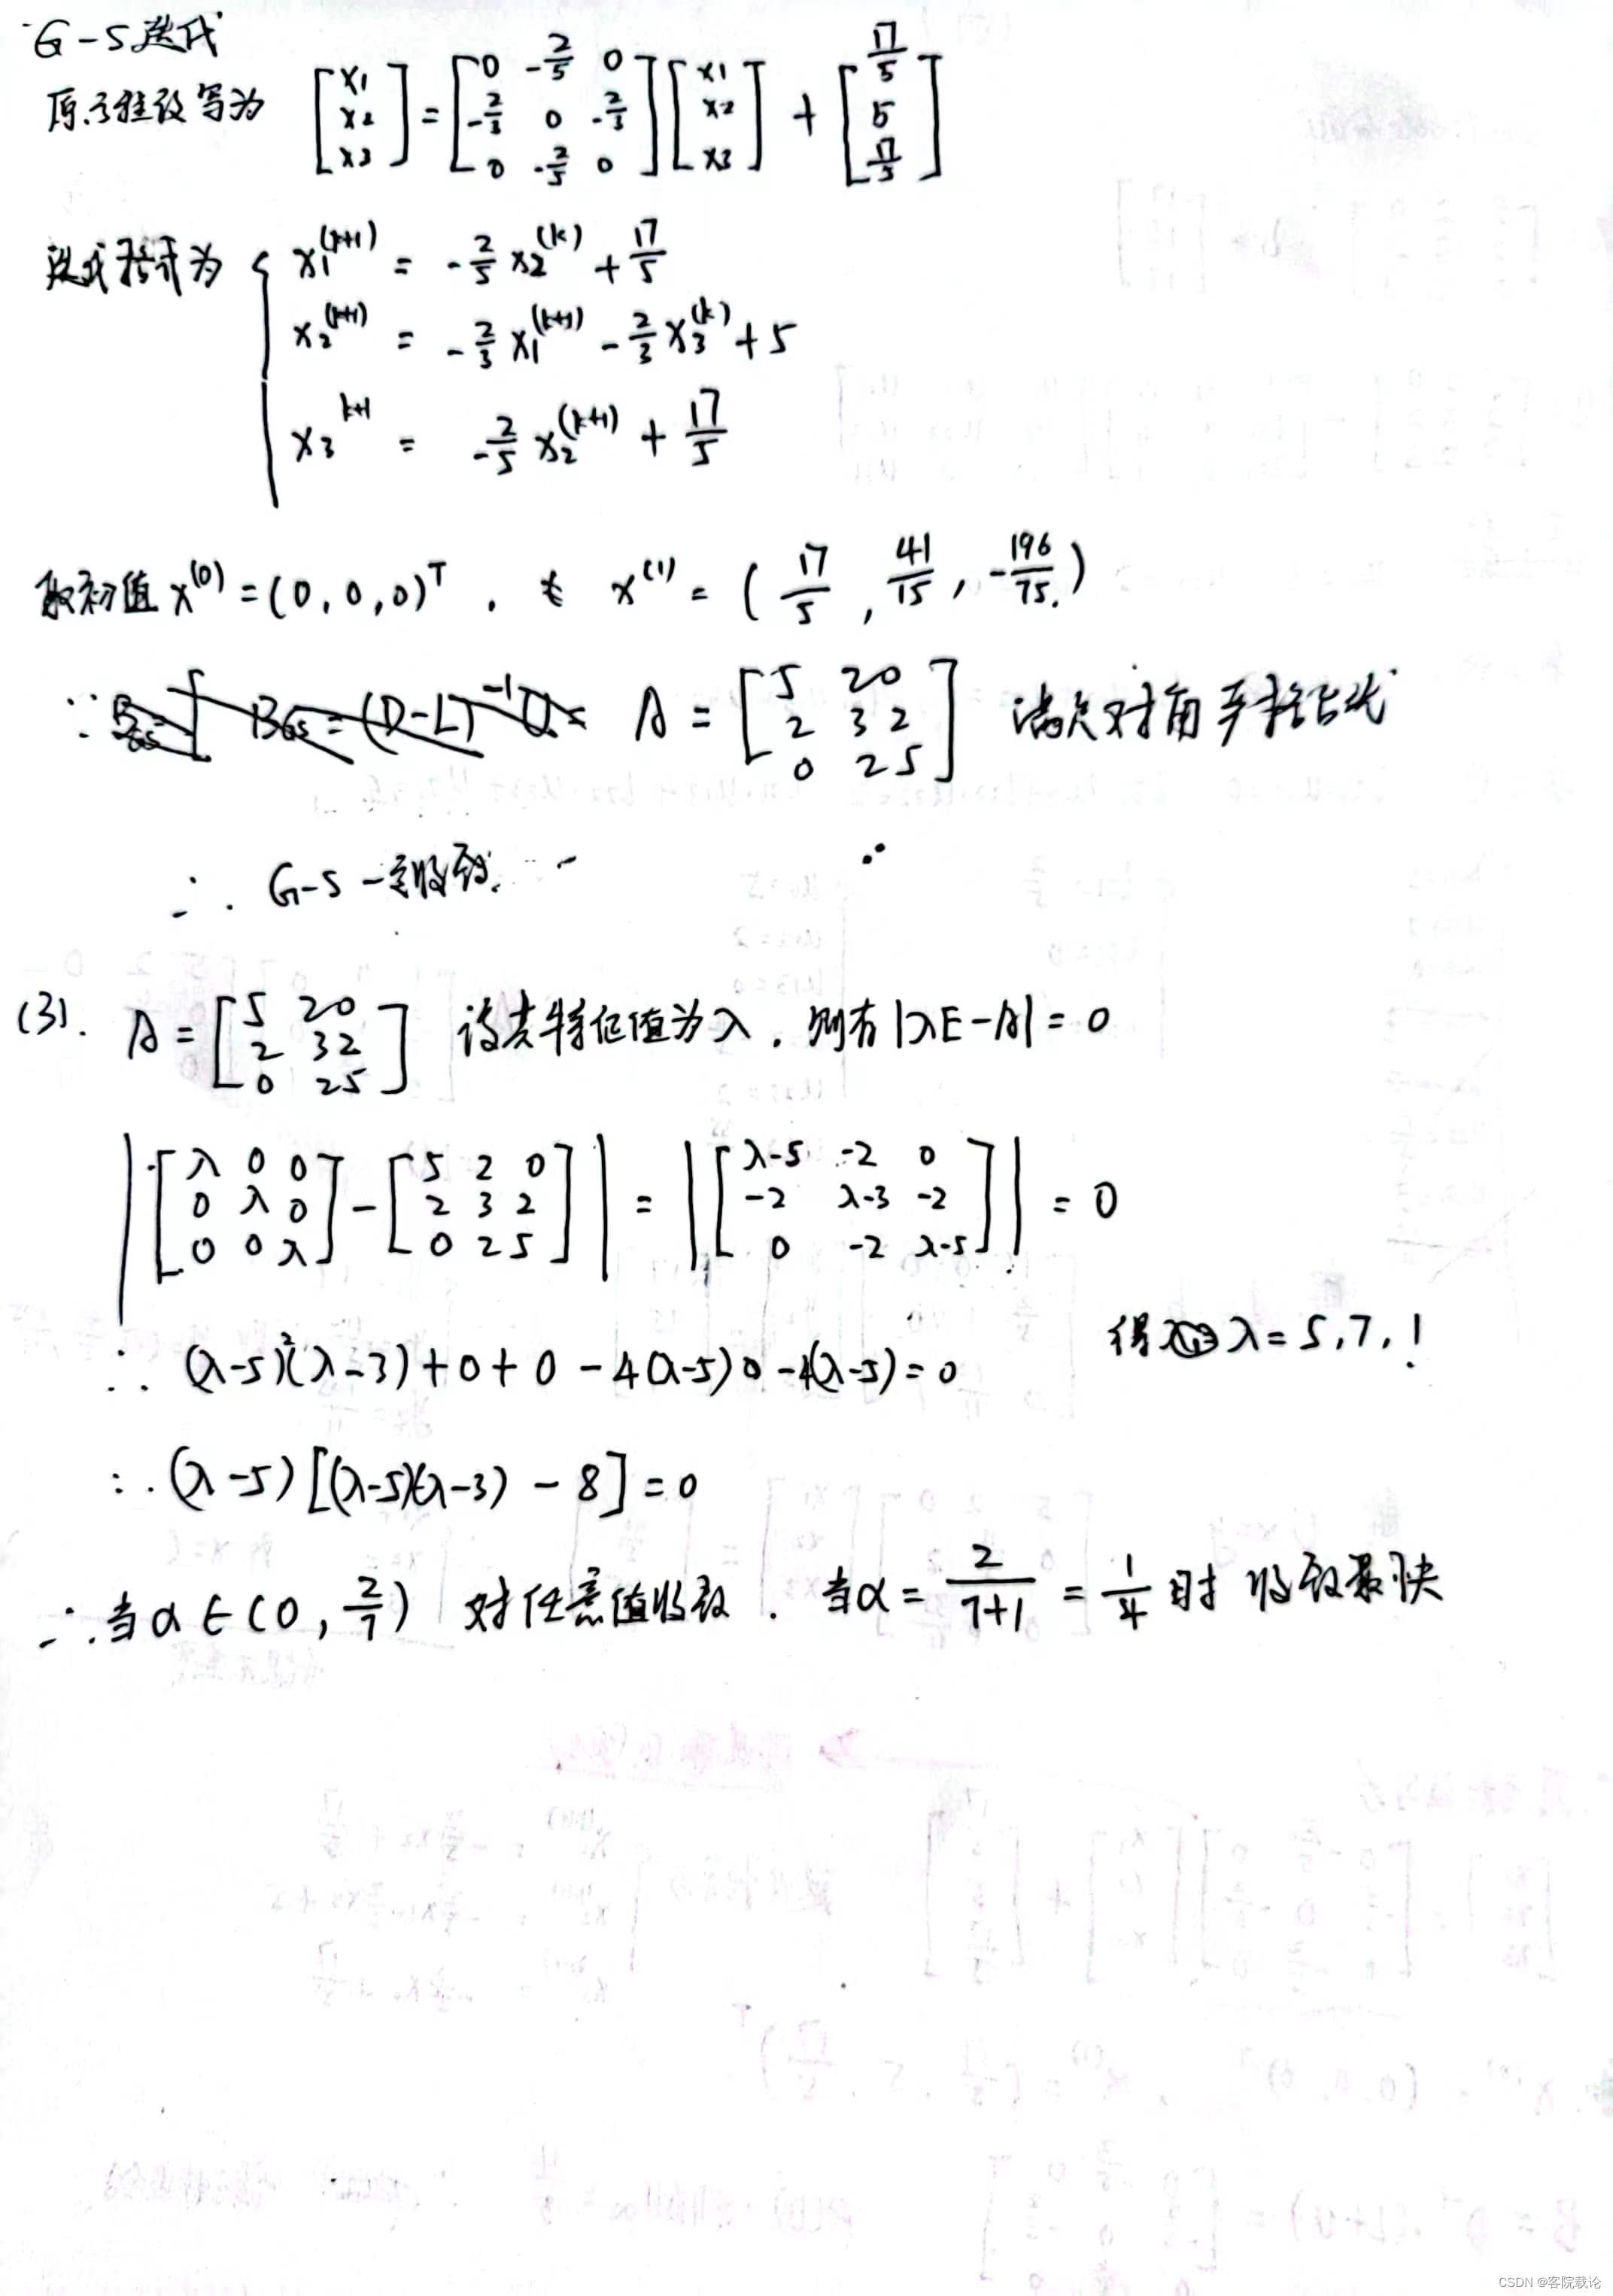 G-S迭代
原方程改写为 [x1 x2 x3] = [0 -2/5 0; -2/3 0 -2/3; 0 -2/5 0] [x1 x2 x3] + [17/5 5 17/5]
迭代格式为 { x1^(k+1) = -2/5 x2^(k) + 17/5
x2^(k+1) = -2/3 x1^(k+1) - 2/3 x3^(k) + 5
x3^k+1 = -2/5 x2^(k+1) + 17/5
取初值 x^(0) = (0, 0, 0)^T . x^(1) = (17/5, 41/15, -196/75.)
∵ BGS = (D-L)^-1 U = A = [5 2 0; 2 3 2; 0 2 5] 满足对角严格占优
∴ G-S一定收敛.
(3). A = [5 2 0; 2 3 2; 0 2 5] 设其特征值为λ, 则有 |λE-A| = 0
|[λ 0 0; 0 λ 0; 0 0 λ] - [5 2 0; 2 3 2; 0 2 5]| = |[λ-5 -2 0; -2 λ-3 -2; 0 -2 λ-5]| = 0
∴ (λ-5)²(λ-3)+0+0-4(λ-5)0-4(λ-5)=0 得 λ=5,7,1
∴ (λ-5)[(λ-5)(λ-3)-8]=0
∴ 当α∈(0, 2/7) 对任意值收敛. 当α = 2/(7+1) = 1/4 时 收敛最快
CSDN @客院载论